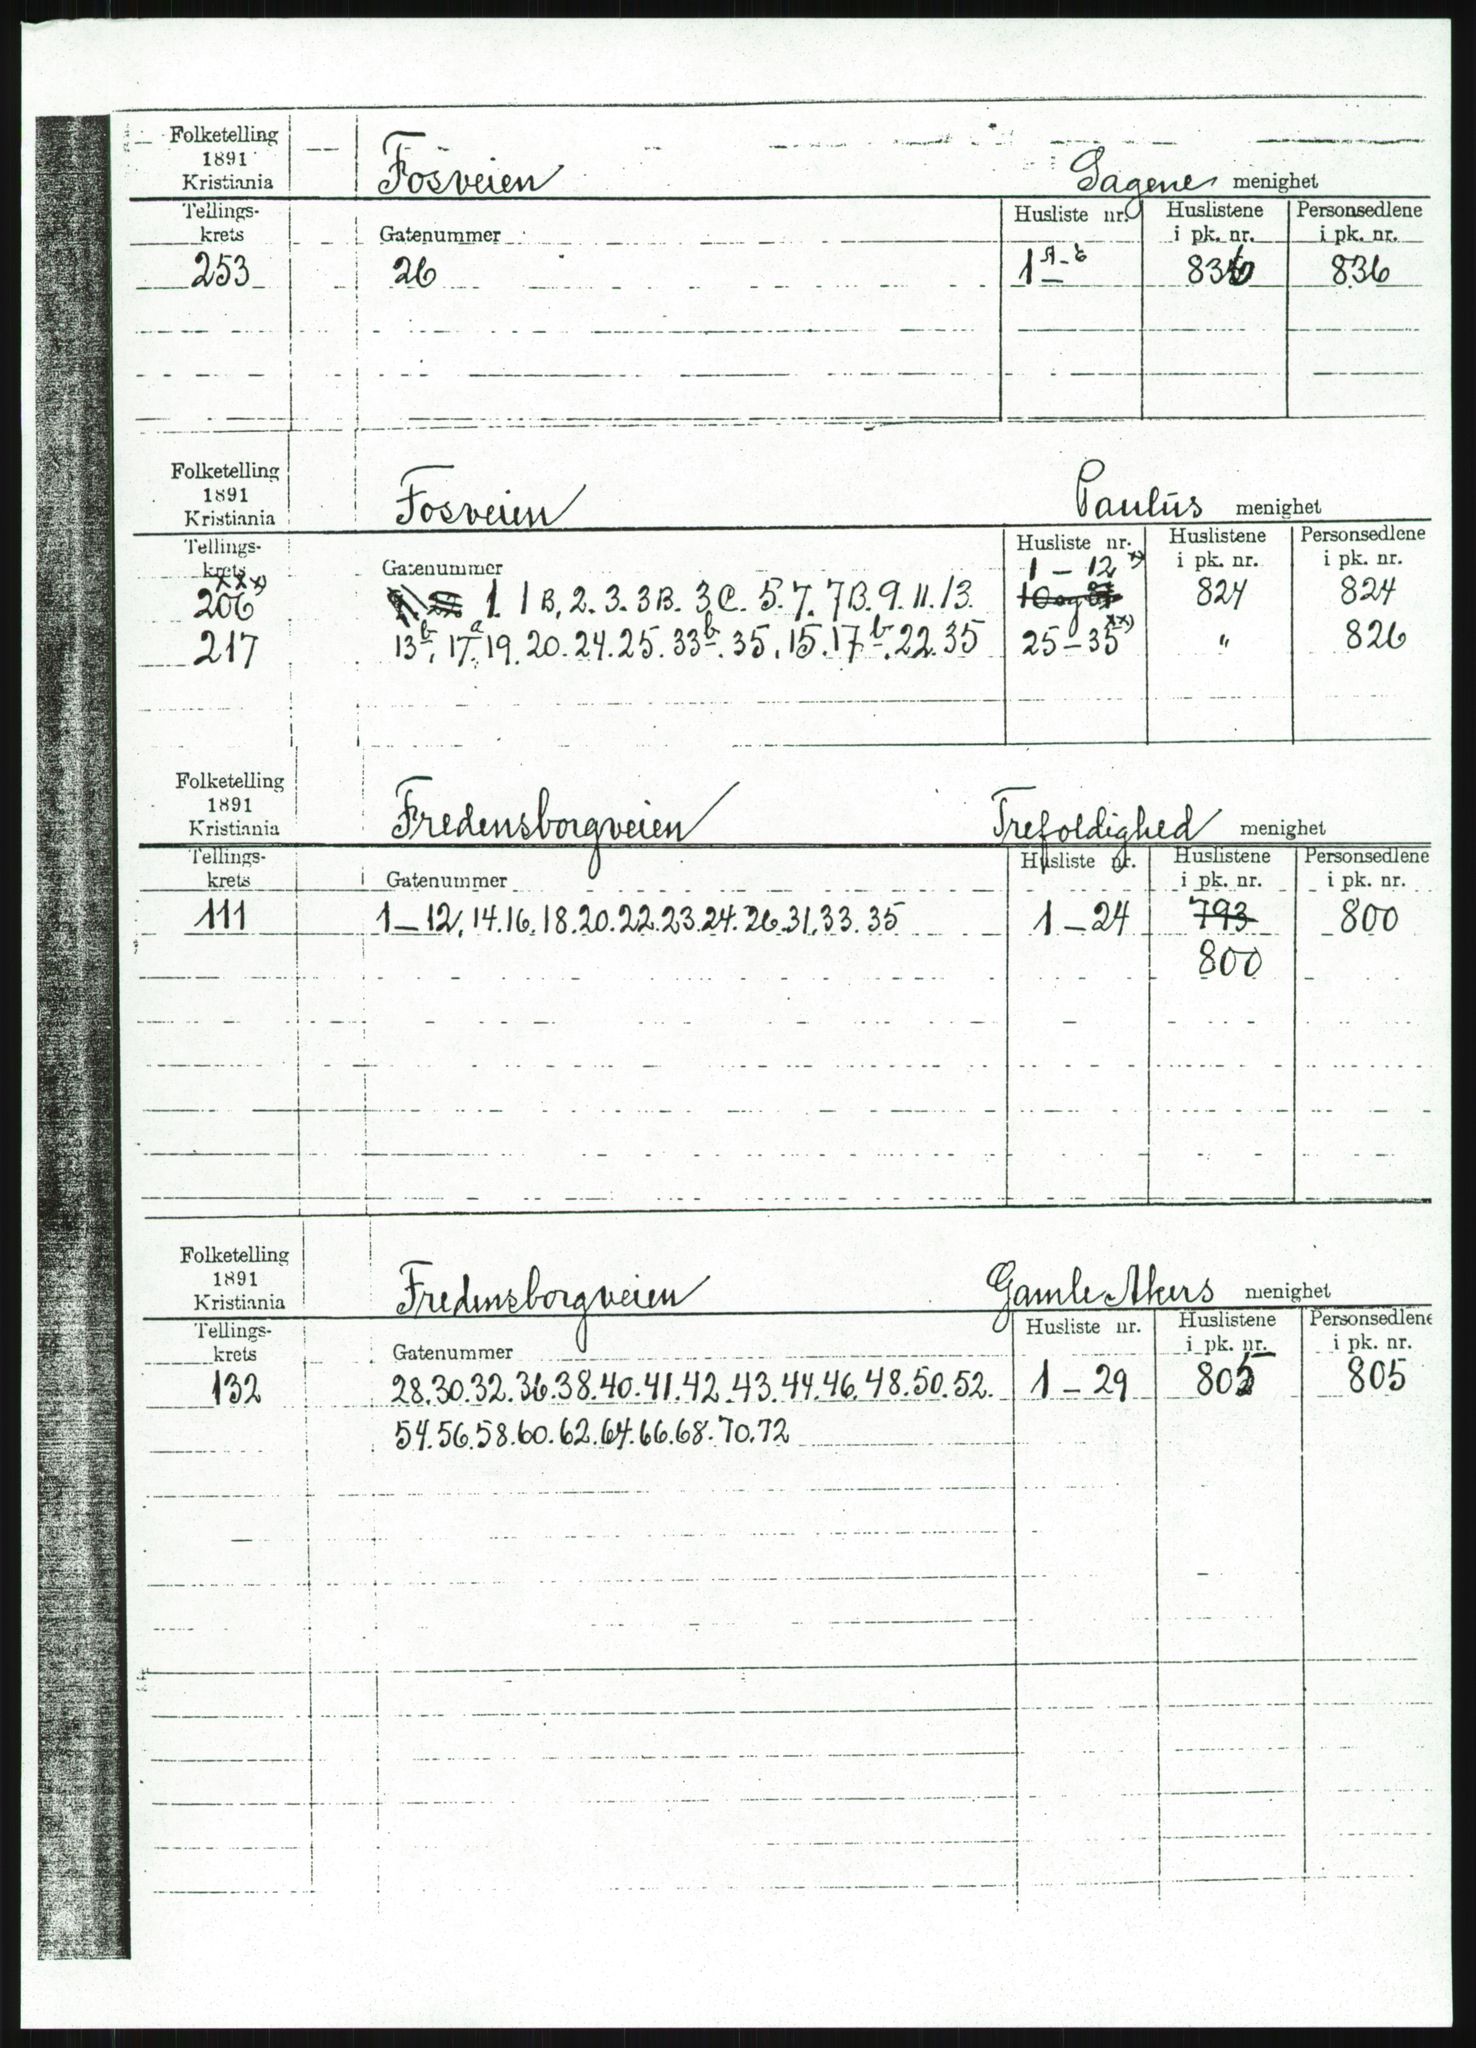 Folketelling
1891
Kristiania
Fosveien Sagene menighet
Tellings-
krets Gatenummer Husliste nr. Huslistene i pk. nr. Personsedlene i pk. nr.
253 26 1 836 836
Folketelling
1891
Kristiania
Fosveien Paulus menighet
Tellings-
krets Gatenummer Husliste nr. Huslistene i pk. nr. Personsedlene i pk. nr.
206 xxx) 1. 1 B, 2. 3. 3 B. 3 C. 5. 7. 7 B. 9. 11. 13. 1 – 12 x) 824 824
217 13b. 17a. 19. 20. 24. 25. 33b. 35. 15. 17b. 22. 35 25 – 35 xx) " 826
Folketelling
1891
Kristiania
Fredensborgveien Trefoldighed menighet
Tellings-
krets Gatenummer Husliste nr. Huslistene i pk. nr. Personsedlene i pk. nr.
111 1 – 12, 14. 16. 18. 20. 22. 23. 24. 26. 31. 33. 35 1 – 24 793 800
800
Folketelling
1891
Kristiania
Fredensborgveien Gamle Akers menighet
Tellings-
krets Gatenummer Husliste nr. Huslistene i pk. nr. Personsedlene i pk. nr.
132 28. 30. 32. 36. 38. 40. 41. 42. 43. 44. 46. 48. 50. 52. 1 – 29 805 805
54. 56. 58. 60. 62. 64. 66. 68. 70. 72